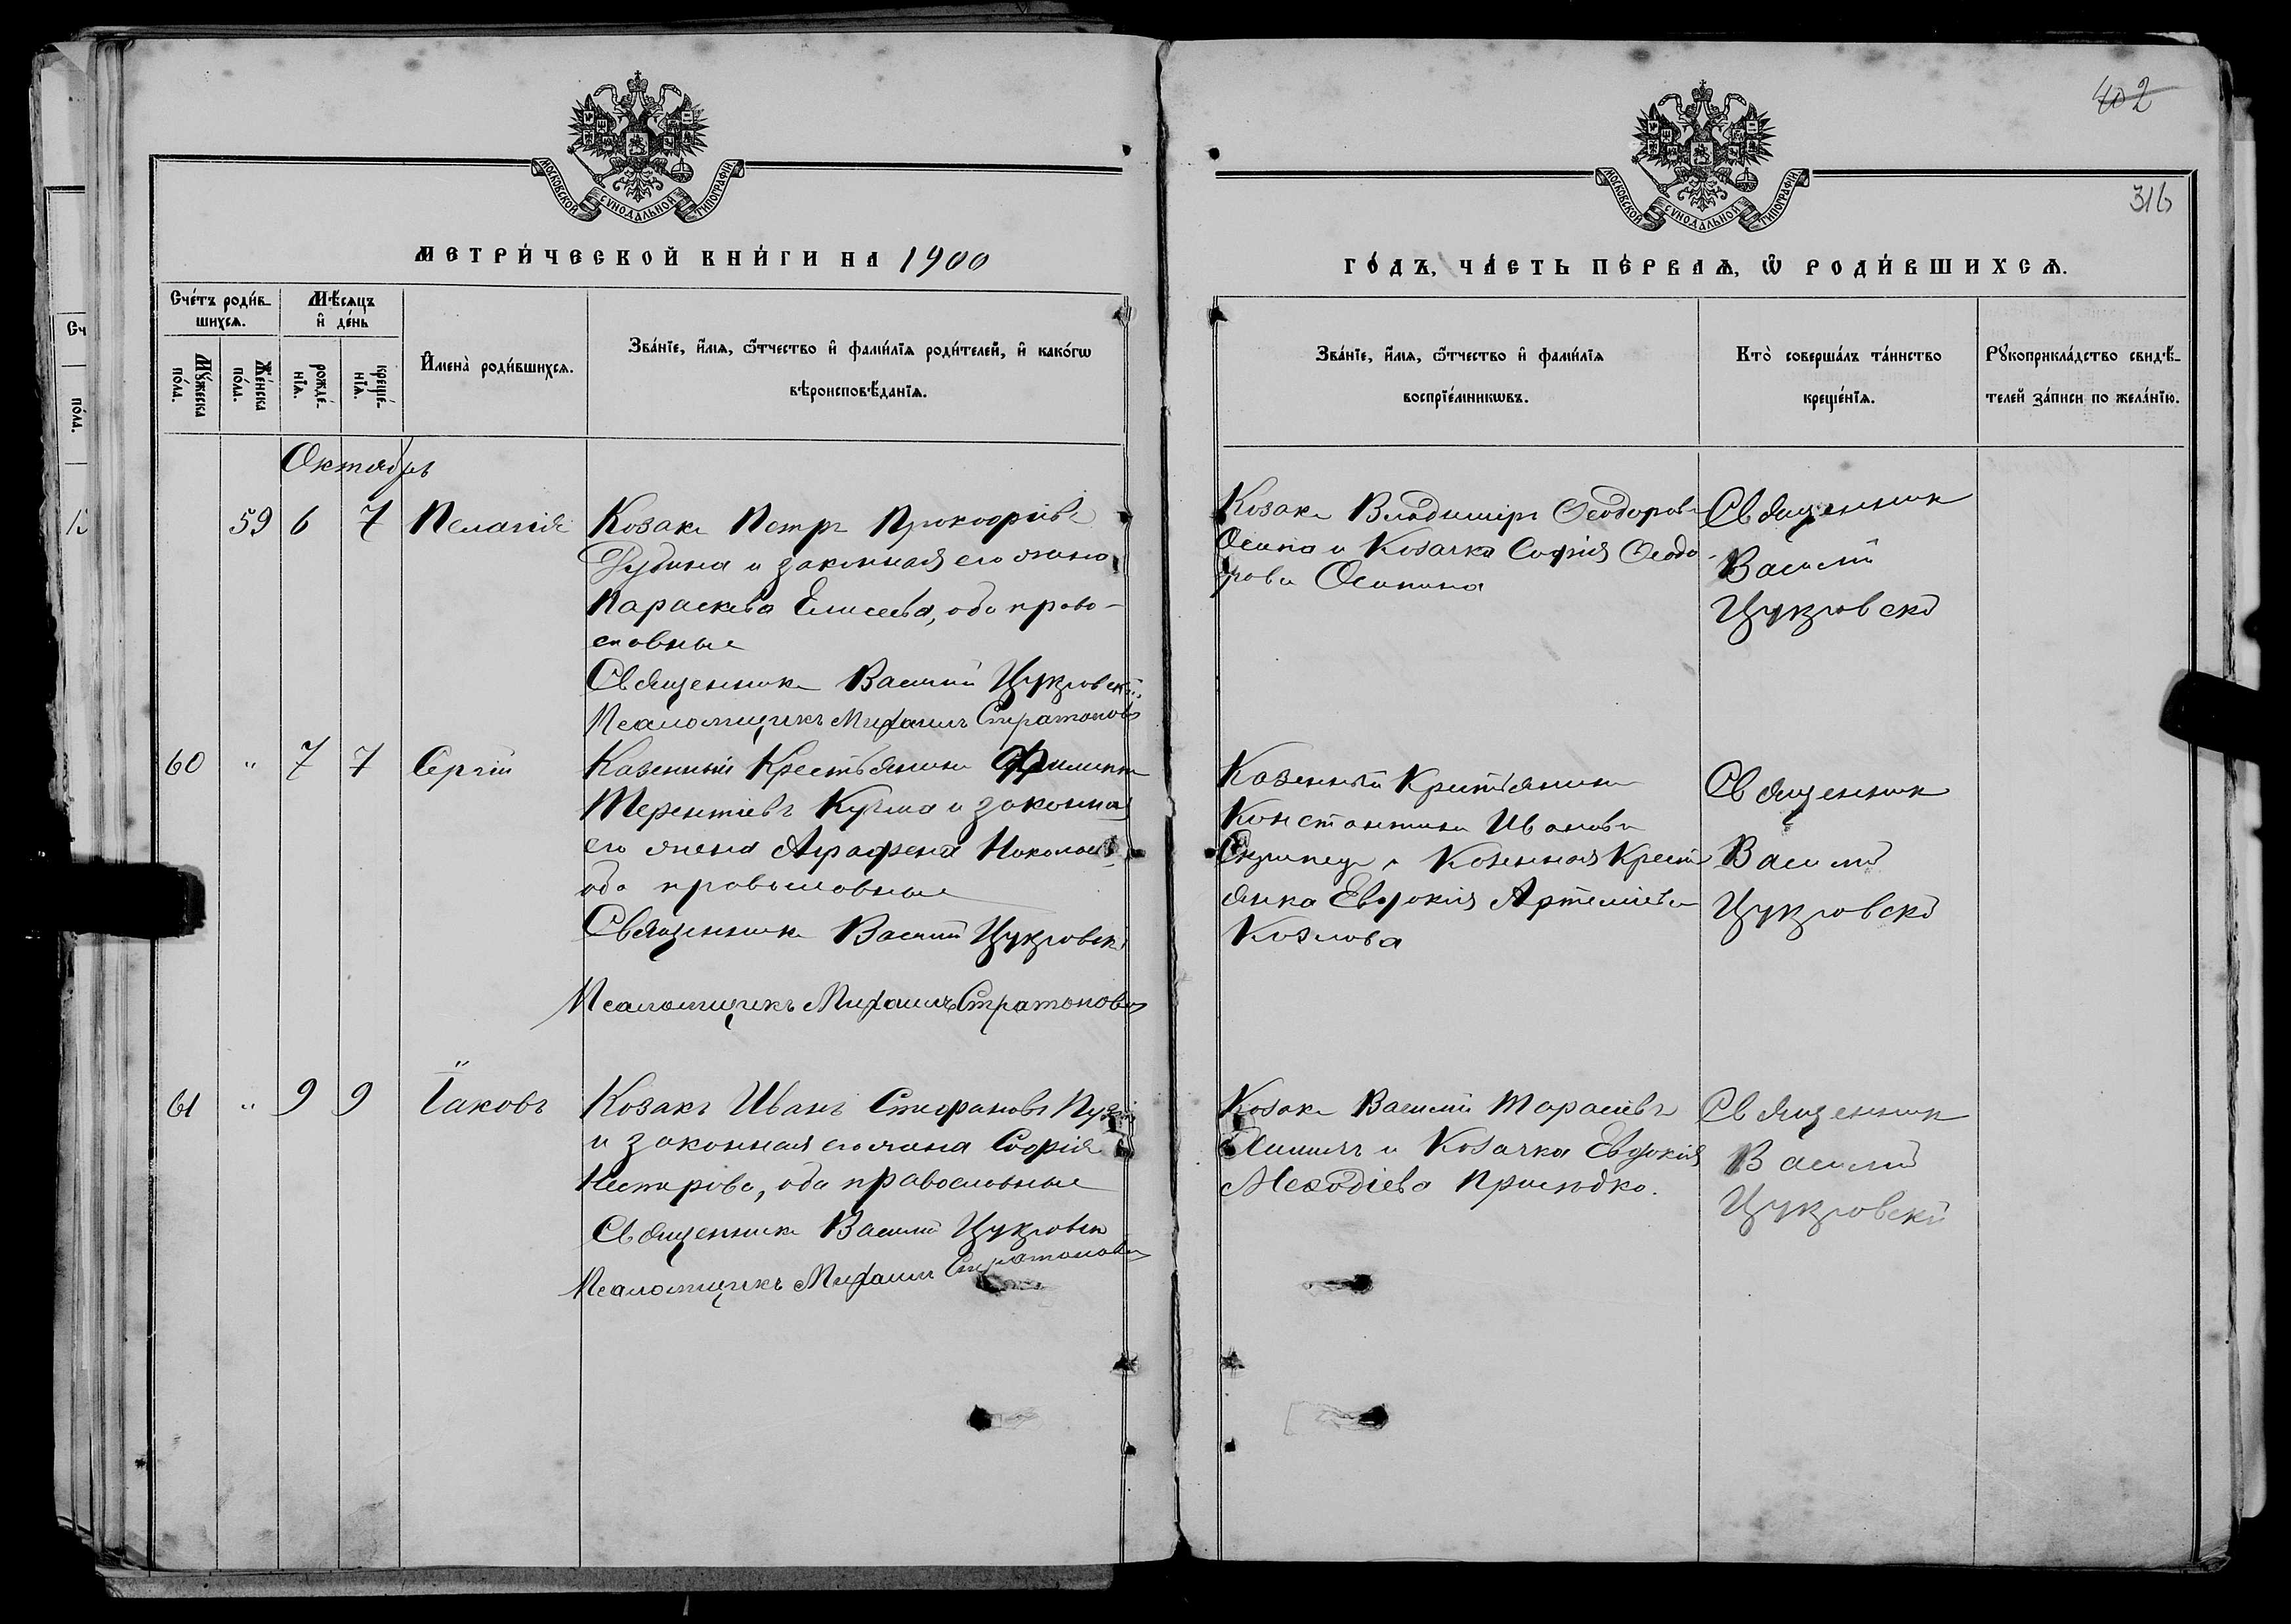 402
316
МОСКОВСКОЙ СѴНОДАЛЬНОЙ ТИПОГРАФІИ
МОСКОВСКОЙ СѴНОДАЛЬНОЙ ТИПОГРАФІИ
МЕТРИ́ЧЕСКОЙ КНИ́ГИ НА 1900
ГО́ДЪ, ЧА́СТЬ ПЕ́РВАѦ, Ѿ РОДИ́ВШИХСѦ.
Сче́тъ роди́в-
шихсѧ.
Мꙋ́жеска по́ла.
Же́нска по́ла.
Мѣ́сѧцъ и де́нь
рожде́-нїѧ.
креще́-нїѧ.
Имена̀ роди́вшихсѧ.
Зва́нїе, и́мѧ, ѻ҆́тчество и фами́лїѧ роди́телей, и како́гѡ
вѣроисповѣ́данїѧ.
Зва́нїе, и́мѧ, ѻ҆́тчество и фами́лїѧ
воспрїе́мникѡвъ.
Кто̀ соверша́лъ та́инство
креще́нїѧ.
Рꙋкоприкла́дство свидѣ́-
телей за́писи по жела́нїю.
Октябрь
59 6 7 Пелагія
Козакъ Петръ Прокофіевъ
и законная его жена
Параскева Елисеева, оба право-
славные
Священникъ Василій Цукровскій
Псаломщикъ Михаилъ Стратоновъ
Козакъ Владиміръ Феодоровъ
Осипа и Козачка Софія Феодо-
рова Осипина
Священник
Василій
Цукровскій
60 " 7 7 Сергій
Казенный Крестьянинъ Филиппъ
Терентіевъ Кучма и законная
его жена Аграфена Николаева
оба православные
Священникъ Василій Цукровскій
Псаломщикъ Михаилъ Стратоновъ
Казенный Крестьянинъ
Константинъ Ивановъ
и Казенная Кресть
янка Евдокія Артеміева
Козлова
Священник
Василій
Цукровскій
61 " 9 9 Іаковъ
Козакъ Иванъ Стефановъ
и законная его жена Софія
Нестерова, оба православные
Священникъ Василій Цукровскій
Псаломщикъ Михаилъ Стратоновъ
Козакъ Василій Тарасіевъ
и Козачка Евдокія
Меѳодіева Приходко.
Священник
Василій
Цукровскій